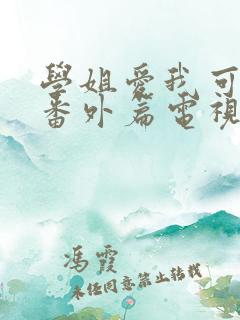 學姐愛我可
番外篇電視
馮霞
未經同意禁止轉載